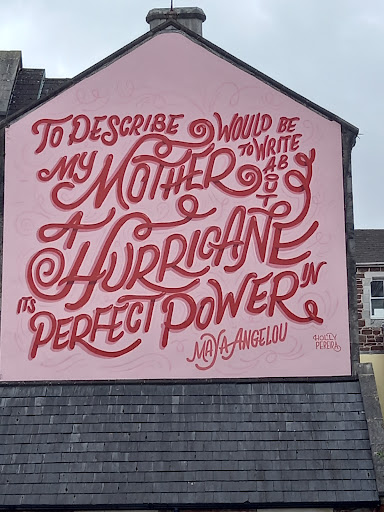 TO DESCRIBE
MY MOTHER
WOULD BE
TO WRITE
ABOUT
A HURRICANE
IN
ITS PERFECT POWER
MAYA ANGELOU
HOLLY
PERERA